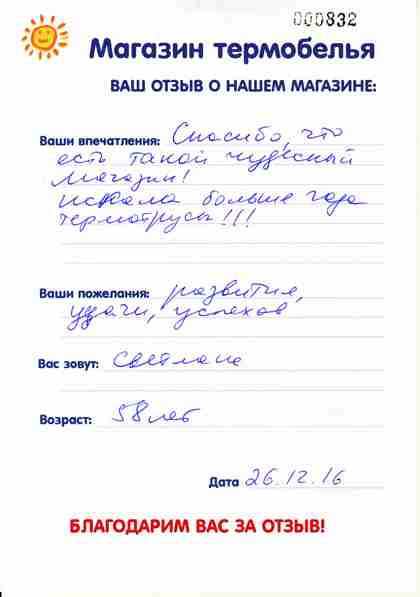 000832
Магазин термобелья
ВАШ ОТЗЫВ О НАШЕМ МАГАЗИНЕ:
Ваши впечатления: Спасибо, что
есть такой чудесный
магазин!
искала больше года
термотрусы!!!
Ваши пожелания: развития,
удачи, успехов
Вас зовут: Светлана
Возраст: 58 лет
Дата 26.12.16
БЛАГОДАРИМ ВАС ЗА ОТЗЫВ!